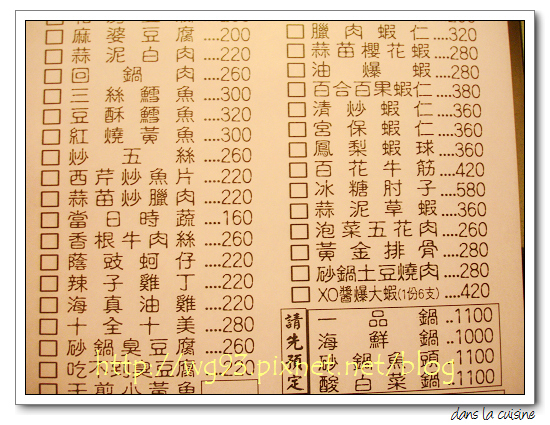 麻婆豆腐....200
蒜泥白肉....220
回鍋肉....260
三絲鱈魚....300
豆酥鱈魚....320
紅燒黃魚....300
炒五絲....260
西芹炒魚片....220
蒜苗炒臘肉....220
當日時蔬....160
香根牛肉絲....260
蔭豉蚵仔....220
辣子雞丁....220
海真油雞....220
十全十美....280
砂鍋臭豆腐....260
臘肉蝦仁....320
蒜苗櫻花蝦....280
油爆蝦....280
百合百果蝦仁....380
清炒蝦仁....360
宮保蝦仁....360
鳳梨蝦球....360
百花牛筋....420
冰糖肘子....580
蒜泥草蝦....360
泡菜五花肉....260
黃金排骨....280
砂鍋土豆燒肉....280
XO醬爆大蝦(1份6支)....420
請先預定
一品鍋..1100
海鮮鍋..1000
砂鍋魚頭..1100
酸白菜鍋..1100
http://wg93.pixnet.net/blog
dans la cuisine